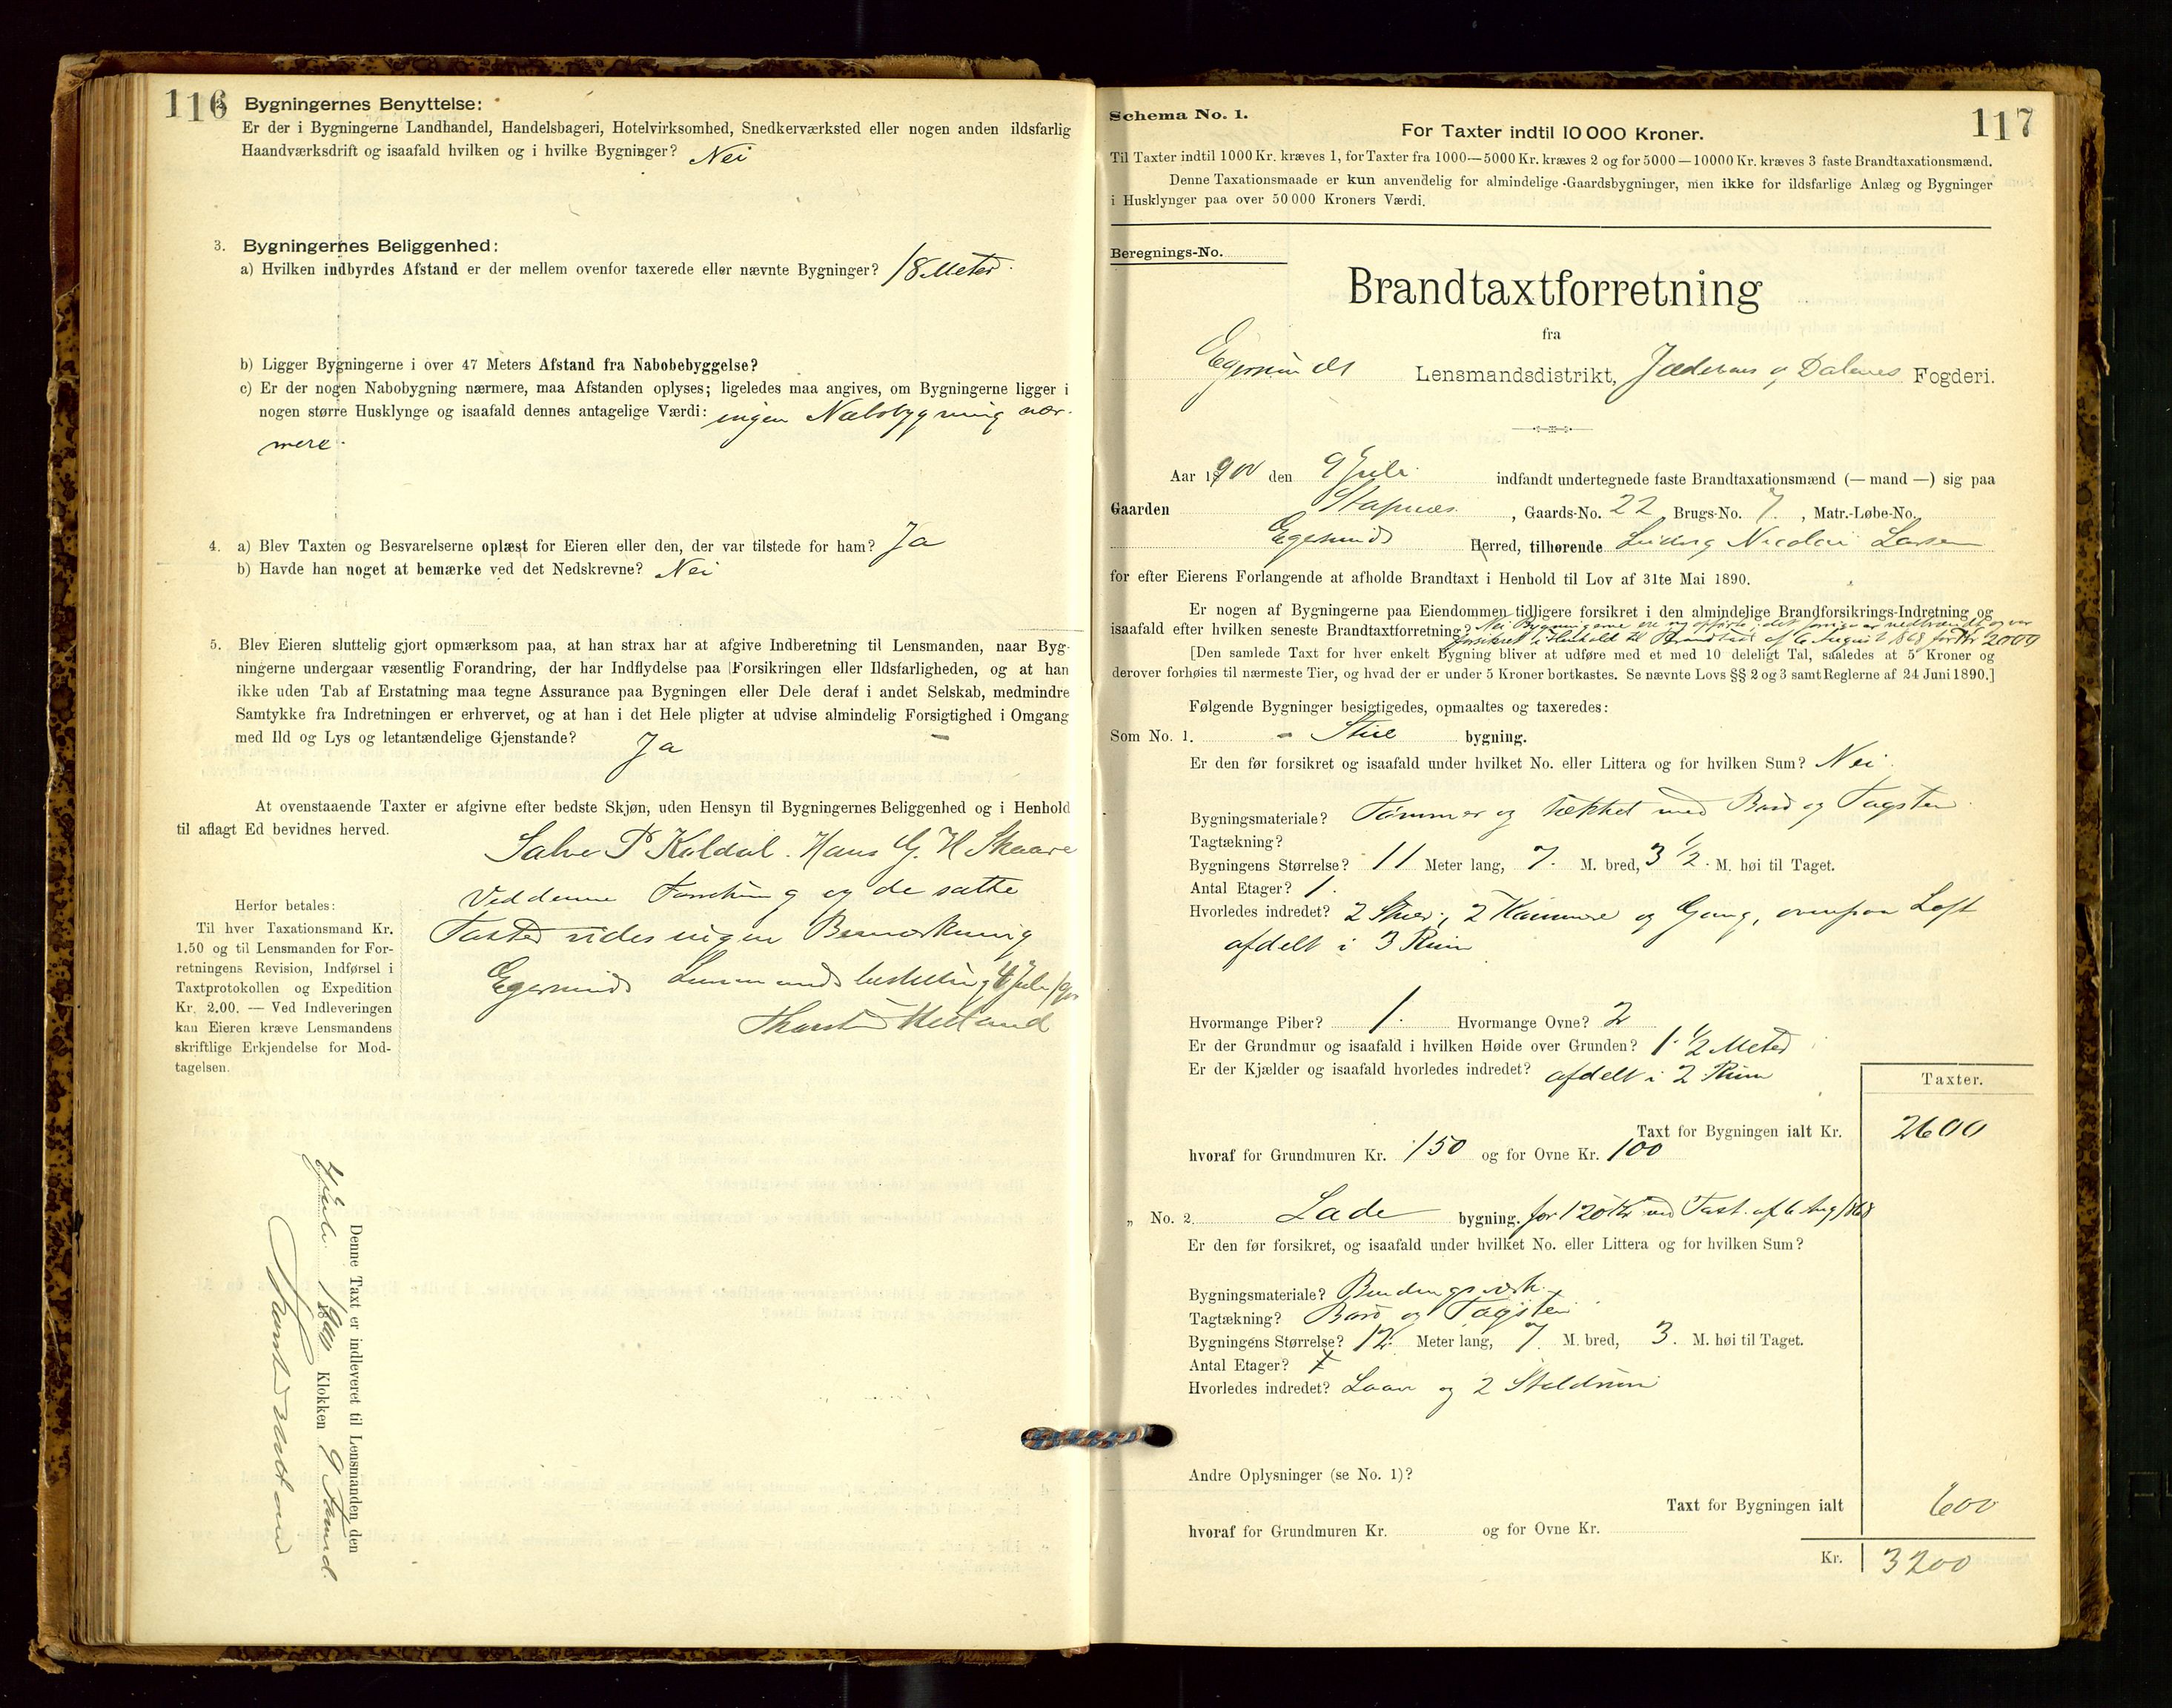 116
2. Bygningernes Benyttelse:
Er der i Bygningerne Landhandel, Handelsbageri, Hotelvirksomhed, Snedkerværksted eller nogen anden ildsfarlig
Haandværksdrift og isaafald hvilken og i hvilke Bygninger? Nei
3. Bygningernes Beliggenhed:
a) Hvilken indbyrdes Afstand er der mellem ovenfor taxerede eller nævnte Bygninger? 18 Meter.
b) Ligger Bygningerne i over 47 Meters Afstand fra Nabobebyggelse?
c) Er der nogen Nabobygning nærmere, maa Afstanden oplyses; ligeledes maa angives, om Bygningerne ligger i
nogen større Husklynge og isaafald dennes antagelige Værdi: ingen Nabobygning nær-
mere.
4. a) Blev Taxten og Besvarelserne oplæst for Eieren eller den, der var tilstede for ham? Ja
b) Havde han noget at bemærke ved det Nedskrevne? Nei
5. Blev Eieren sluttelig gjort opmærksom paa, at han strax har at afgive Indberetning til Lensmanden, naar Byg-
ningerne undergaar væsentlig Forandring, der har Indflydelse paa Forsikringen eller Ildsfarligheden, og at han
ikke uden Tab af Erstatning maa tegne Assurance paa Bygningen eller Dele deraf i andet Selskab, medmindre
Samtykke fra Indretningen er erhvervet, og at han i det Hele pligter at udvise almindelig Forsigtighed i Omgang
med Ild og Lys og letantændelige Gjenstande? Ja
At ovenstaaende Taxter er afgivne efter bedste Skjøn, uden Hensyn til Bygningernes Beliggenhed og i Henhold
til aflagt Ed bevidnes herved.
Salve P Koldal. Hans G. H Skaare
Ved denne Forretning og de satte
Taxter vides ingen Bemærkning
Egersunds Lensmandsbestilling 4 Juli 1900
Herfor betales:
Til hver Taxationsmand Kr.
1.50 og til Lensmanden for For-
retningens Revision, Indførsel i
Taxtprotokollen og Expedition
Kr. 2.00. — Ved Indleveringen
kan Eieren kræve Lensmandens
skriftlige Erkjendelse for Mod-
tagelsen.
Denne Taxt er indleveret til Lensmanden den
Juli 1900 Klokken 9 Formd.
117
Schema No. 1.
For Taxter indtil 10 000 Kroner.
Til Taxter indtil 1000 Kr. kræves 1, for Taxter fra 1000—5000 Kr. kræves 2 og for 5000—10000 Kr. kræves 3 faste Brandtaxationsmænd.
Denne Taxationsmaade er kun anvendelig for almindelige Gaardsbygninger, men ikke for ildsfarlige Anlæg og Bygninger
i Husklynger paa over 50 000 Kroners Værdi.
Beregnings-No.
Brandtaxtforretning
fra
Egersunds Lensmandsdistrikt, Jæderens og Dalenes Fogderi.
Aar 1900 den Juli indfandt undertegnede faste Brandtaxationsmænd (— mand —) sig paa
Gaarden Stapnes, Gaards-No. 22, Brugs-No. 7, Matr.-Løbe-No.
Egersunds Herred, tilhørende Ludvig Nicolai Larsen
for efter Eierens Forlangende at afholde Brandtaxt i Henhold til Lov af 31te Mai 1890.
Er nogen af Bygningerne paa Eiendommen tidligere forsikret i den almindelige Brandforsikrings-Indretning og
isaafald efter hvilken seneste Brandtaxtforretning? Nei Bygningerne ere ny opført, i det forrige var nedbrændt og var
forsikret i Henhold til Brandtaxt af 6 August 1868 for Kr 2000
[Den samlede Taxt for hver enkelt Bygning bliver at udføre med et med 10 deleligt Tal, saaledes at 5 Kroner og
derover forhøies til nærmeste Tier, og hvad der er under 5 Kroner bortkastes. Se nævnte Lovs §§ 2 og 3 samt Reglerne af 24 Juni 1890.]
Følgende Bygninger besigtigedes, opmaaltes og taxeredes:
Som No. 1. - Stue bygning.
Er den før forsikret og isaafald under hvilket No. eller Littera og for hvilken Sum? Nei.
Bygningsmateriale? Tømmer og tækket med Bord og Tagsten
Tagtækning?
Bygningens Størrelse? 11 Meter lang, 7. M. bred, 3 1/2. M. høi til Taget.
Antal Etager? 1.
Hvorledes indredet? 2 Stuer, 2 Kammere og Gang, ovenpaa Loft
afdelt i 3 Rum
Hvormange Piber? 1. Hvormange Ovne? 2
Er der Grundmur og isaafald i hvilken Høide over Grunden? 1. 1/2 Meter
Er der Kjælder og isaafald hvorledes indredet? afdelt i 2 Rum
Taxter.
Taxt for Bygningen ialt Kr. 2600
hvoraf for Grundmuren Kr. 150 og for Ovne Kr. 100
„ No. 2. Lade bygning. for 120 Kr ved Taxt. af 6 Aug 1868
Er den før forsikret, og isaafald under hvilket No. eller Littera og for hvilken Sum?
Bygningsmateriale? Bindingsværk.
Tagtækning? Bord og Tagsten
Bygningens Størrelse? 12. Meter lang, 7. M. bred, 3. M. høi til Taget.
Antal Etager? 1
Hvorledes indredet? Laave og 2 Staldrum
Andre Oplysninger (se No. 1)?
Taxt for Bygningen ialt 600
hvoraf for Grundmuren Kr. og for Ovne Kr.
Kr. 3200